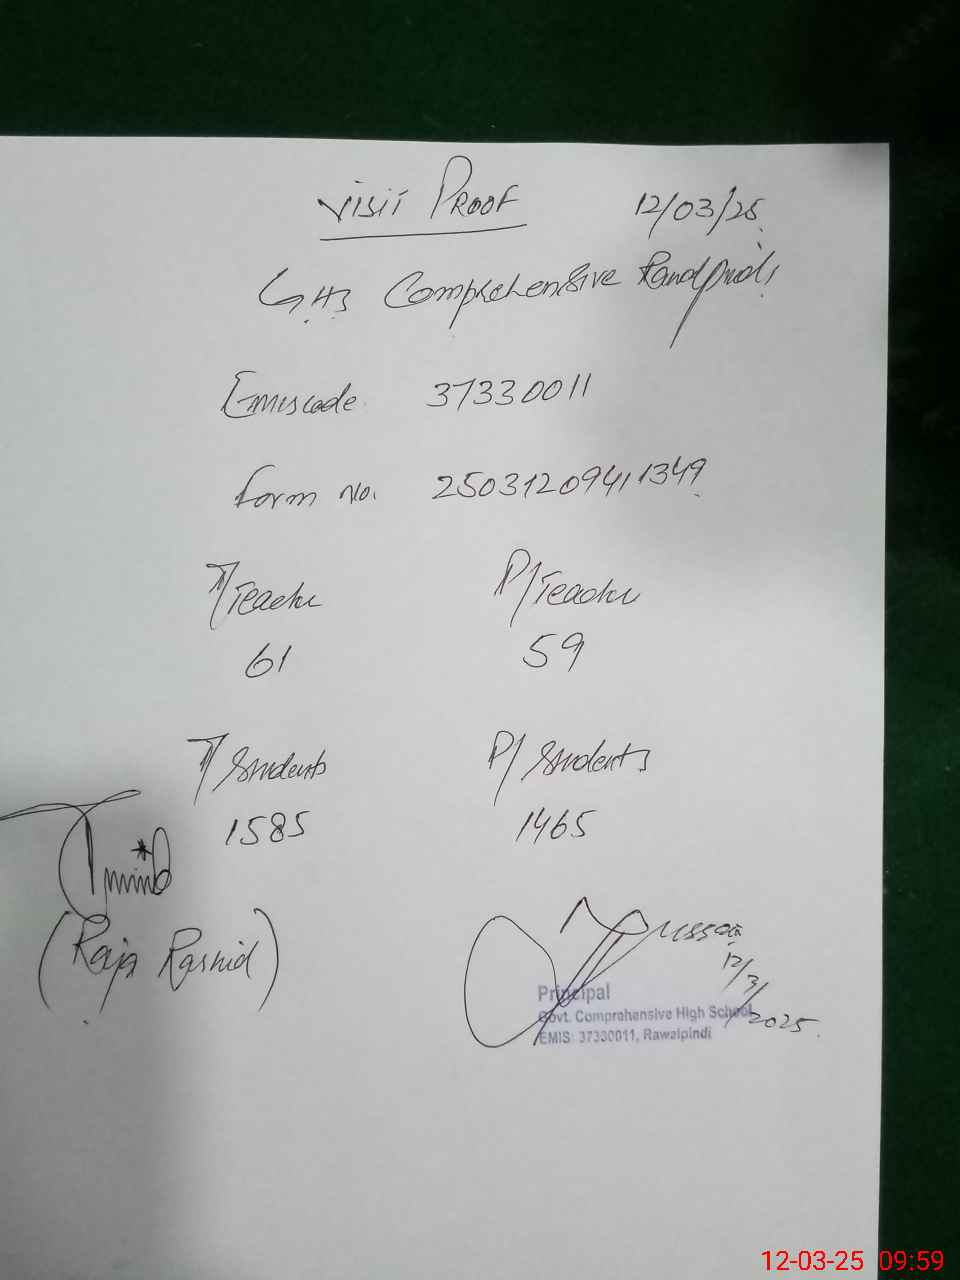 Visit Proof 12/03/25
G.H.S Comprehensive Rawalpindi
Emiscode 37330011
Form No. 25031209411349
T/Teacher P/Teacher
61 59
T/Students P/Students
1585 1465
(Raja Rashid)
12/3/2025.
Principal
Govt. Comprehensive High School
EMIS: 37330011, Rawalpindi
12-03-25 09:59